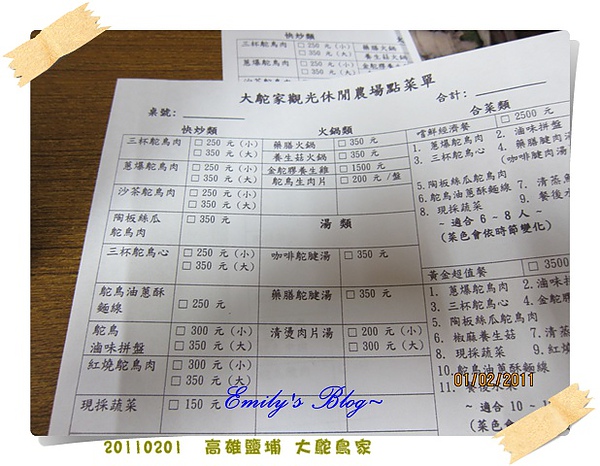 快炒類
三杯鴕鳥肉 □ 250 元 (小) 藥膳火鍋
□ 350 元 (大) 養生菇火鍋
蔥爆鴕鳥肉 □ 250 元 (小)
□ 350 元 (大)
大鴕家觀光休閒農場點菜單
桌號:
合計:
快炒類 火鍋類 合菜類
三杯鴕鳥肉 □ 250 元 (小) 藥膳火鍋 □ 350 元
□ 350 元 (大) 養生菇火鍋 □ 350 元
蔥爆鴕鳥肉 □ 250 元 (小) 金鴕膠養生雞 □ 1500 元
□ 350 元 (大) 鴕鳥生肉片 □ 200 元 /盤
沙茶鴕鳥肉 □ 250 元 (小)
□ 350 元 (大)
陶板絲瓜鴕鳥肉 □ 350 元
湯 類
三杯鴕鳥心 □ 250 元 (小) 咖啡鴕腱湯 □ 350 元
□ 350 元 (大)
鴕鳥油蔥酥麵線 □ 250 元 藥膳鴕腱湯 □ 350 元
鴕鳥滷味拼盤 □ 300 元 (小) 清燙肉片湯 □ 200 元 (小)
□ 350 元 (大) □ 300 元 (大)
紅燒鴕鳥肉 □ 300 元 (小)
□ 350 元 (大)
現採蔬菜 □ 150 元
嚐鮮經濟餐 □ 2500 元
1. 蔥爆鴕鳥肉 2. 滷味拼盤
3. 三杯鴕鳥心 4. 藥膳鴕腱湯
(咖啡鴕腱湯
5. 陶板絲瓜鴕鳥肉
6. 鴕鳥油蔥酥麵線 7. 清蒸魚
8. 現採蔬菜 9. 餐後水
~ 適合 6 ~ 8 人 ~
(菜色會依時節變化)
黃金超值餐 □ 3500
1. 蔥爆鴕鳥肉 2. 滷味拼
3. 三杯鴕鳥心 4. 金鴕膠
5. 陶板絲瓜鴕鳥肉
6. 椒麻養生菇 7. 清蒸
8. 現採蔬菜 9. 紅燒
10. 鴕鳥油蔥酥麵線
11. 餐後水
~ 適合 10 ~
(菜色會依
01/02/2011
Emily's Blog~
20110201 高雄鹽埔 大鴕鳥家